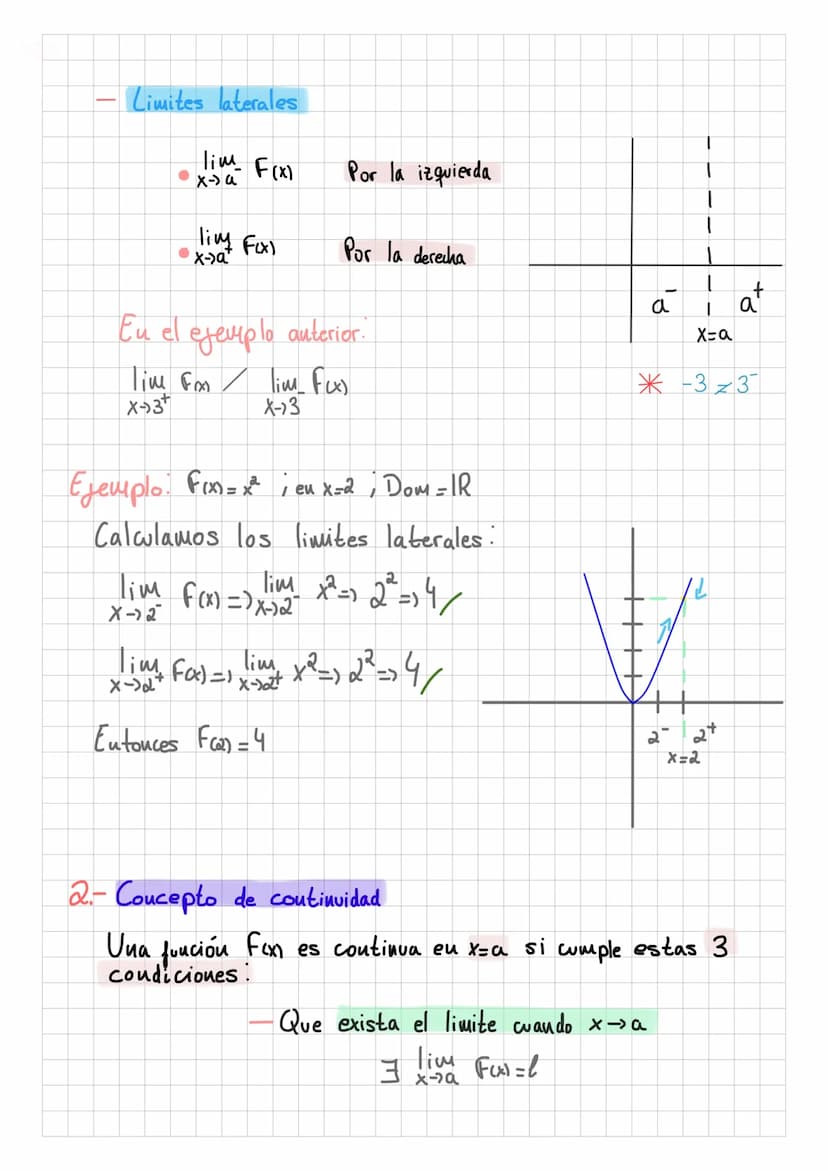 - Limites laterales
• lim x→a⁻ F(x) Por la izquierda
• lim x→a⁺ F(x) Por la derecha
a⁻ a⁺
x=a
En el ejemplo anterior:
lim x→3⁺ F(x) / lim x→3⁻ F(x)
* -3 ≠ 3⁻
Ejemplo: F(x) = x² ; en x=2 ; Dom = IR
Calculamos los limites laterales:
lim x→2⁻ F(x) => lim x→2⁻ x² => 2² => 4
lim x→2⁺ F(x) => lim x→2⁺ x² => 2² => 4
Entonces F(2) = 4
2⁻ 2⁺
x=2
2.- Concepto de continuidad
Una función F(x) es continua en x=a si cumple estas 3
condiciones:
- Que exista el limite cuando x→a
∃ lim x→a F(x) = l